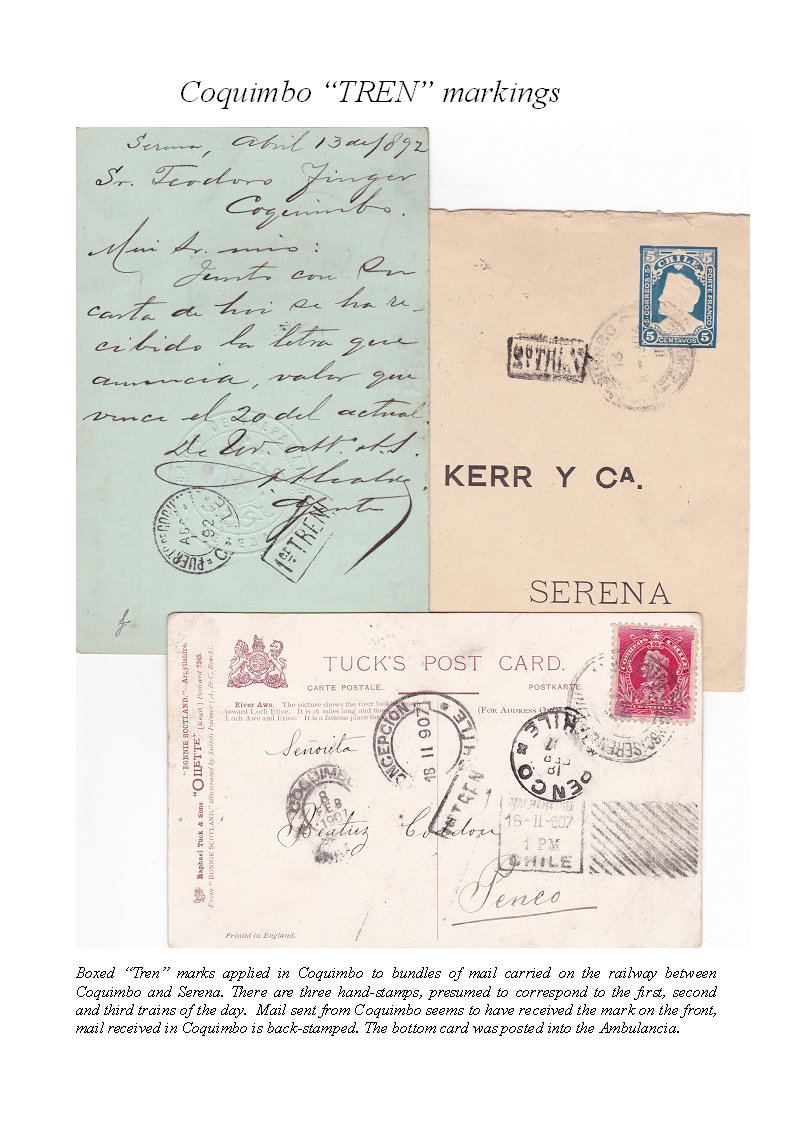 Coquimbo “TREN” markings
Serena, Abril 13 de 1892
Sr. Teodoro Finger
Coquimbo.
Mui Sr. mio:
Junto con su
carta de hoi se ha re-
cibido la letra que
anuncia, valor que
vence el 20 del actual.
De Ud. att. S.S.
Agente
PUERTO DE COQUIMBO
92
1ER TREN
5 CHILE 5
CORREOS
PORTE FRANCO
5 CENTAVOS 5
KERR Y CA.
SERENA
TUCK'S POST CARD.
CARTE POSTALE.
POSTKARTE.
River Awe. The picture shows the river
toward Loch Etive. It is 16 miles long and
Loch Awe and Etive. It is a famous place for
(FOR ADDRESS
"BONNIE SCOTLAND."—Argyllshire.
Raphael Tuck & Sons "OILETTE" [Regd.] Postcard 7365.
From "BONNIE SCOTLAND," illustrated by Sutton Palmer (A. & C. Black).
CONCEPCION CHILE
18 II 907
CORREOS CHILE
SERENA
PENCO CHILE
18 FEB 07
Señorita
COQUIMBO
8 FEB 1907
CHILE
TREN
Beatriz Condon
16-II-907
1 PM
CHILE
Penco
Printed in England.
Boxed “Tren” marks applied in Coquimbo to bundles of mail carried on the railway between
Coquimbo and Serena. There are three hand-stamps, presumed to correspond to the first, second
and third trains of the day. Mail sent from Coquimbo seems to have received the mark on the front,
mail received in Coquimbo is back-stamped. The bottom card was posted into the Ambulancia.